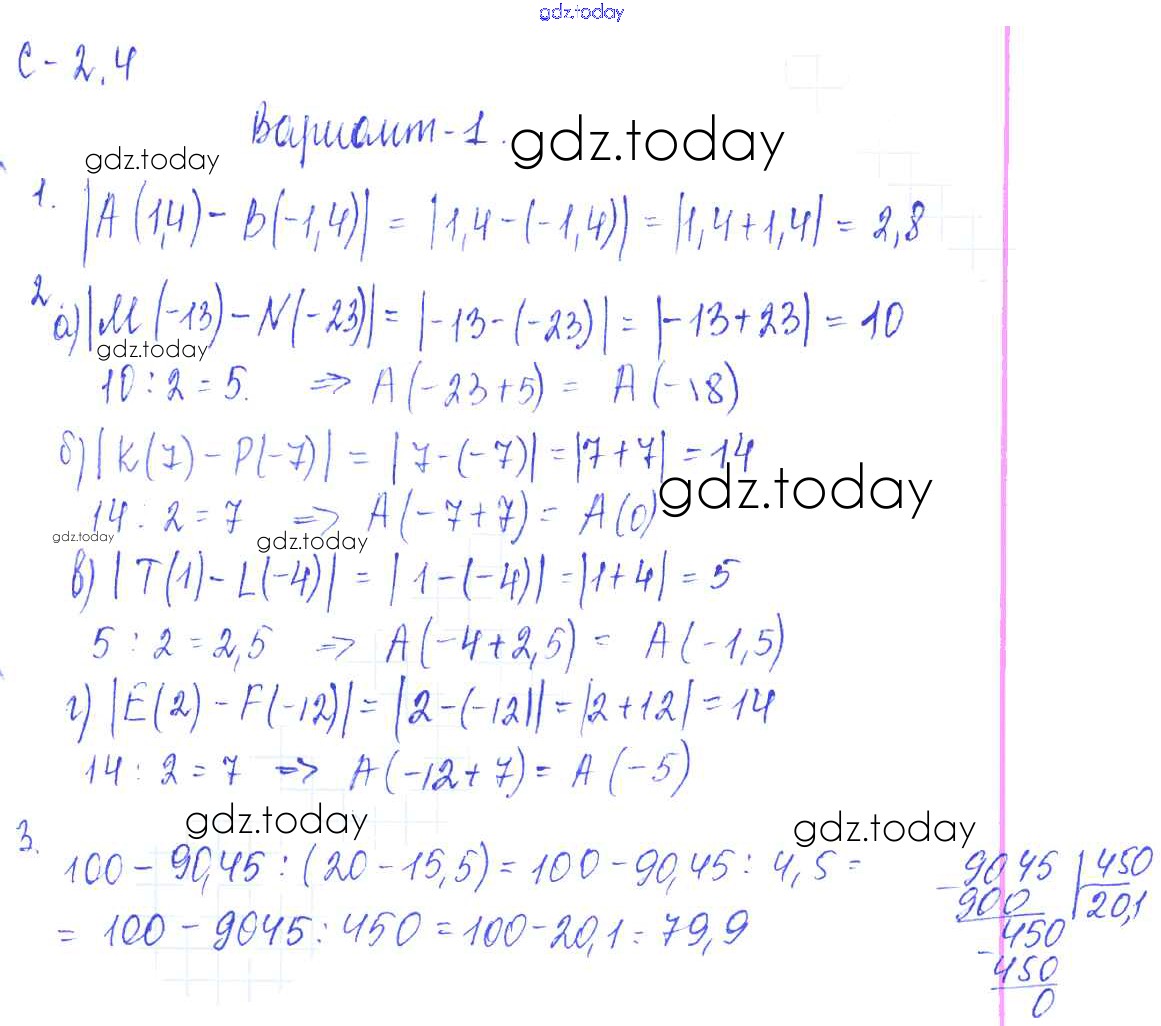 gdz.today
С-2,4
Вариант-1. gdz.today
gdz.today
1. |A(1,4)-B(-1,4)| = |1,4-(-1,4)| = |1,4+1,4| = 2,8
2 а) |M(-13)-N(-23)| = |-13-(-23)| = |-13+23| = 10
gdz.today
10:2=5. => A(-23+5) = A(-18)
б) |K(7)-P(-7)| = |7-(-7)| = |7+7| = 14
gdz.today
14:2=7 => A(-7+7) = A(0)
gdz.today gdz.today
в) |T(1)-L(-4)| = |1-(-4)| = |1+4| = 5
5:2=2,5 => A(-4+2,5) = A(-1,5)
г) |E(2)-F(-12)| = |2-(-12)| = |2+12| = 14
14:2=7 => A(-12+7) = A(-5)
gdz.today gdz.today
3. 100-90,45:(20-15,5)=100-90,45:4,5=
= 100-9045:450=100-20,1=79,9
9045 450
-900 20,1
-450
450
0